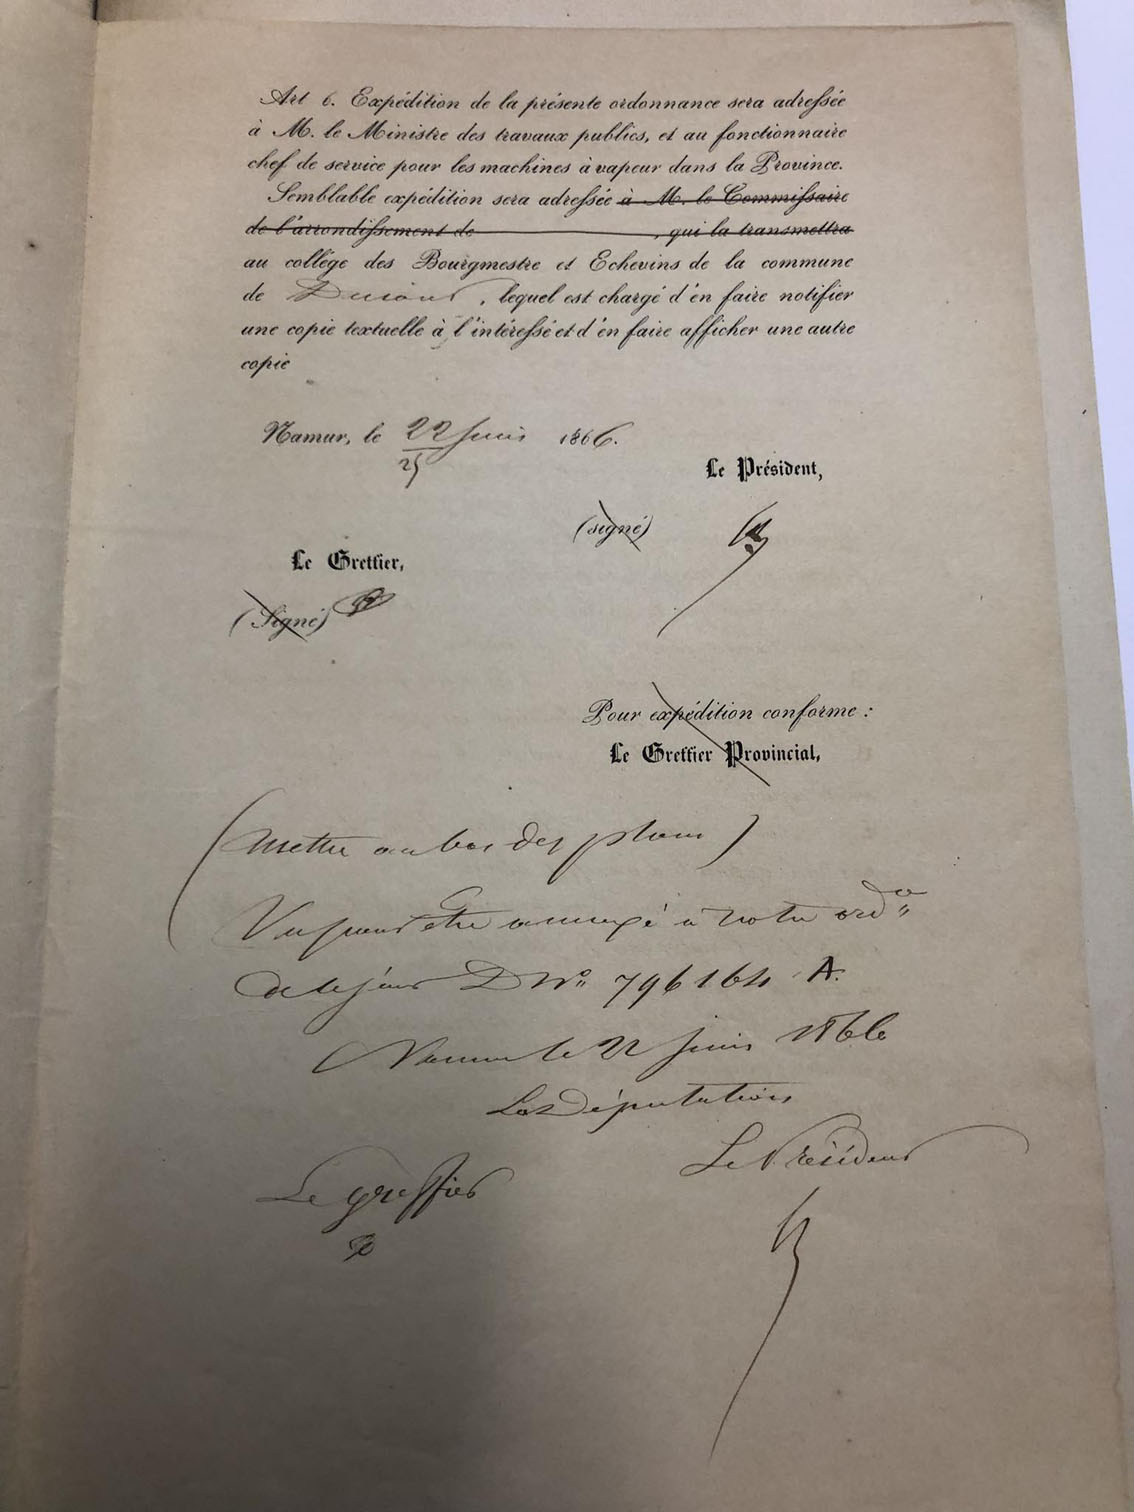 Art 6. Expédition de la présente ordonnance sera adressée
à M. le Ministre des travaux publics, et au fonctionnaire
chef de service pour les machines à vapeur dans la Province.
Semblable expédition sera adressée à M. le Commissaire
de l'arrondissement de , qui la transmettra
au collège des Bourgmestre et Echevins de la commune
de Dinant, lequel est chargé d'en faire notifier
une copie textuelle à l'intéressé et d'en faire afficher une autre
copie
Namur, le 22 juin 1866.
25
Le Président,
(signé)
Le Greffier,
(Signé)
Pour expédition conforme :
Le Greffier Provincial,
(Mettre au bas des plans)
Vu pour être annexé à notre ordce
de ce jour D No 796164 A.
Namur le 22 juin 1866
La Députation
Le Président
Le greffier